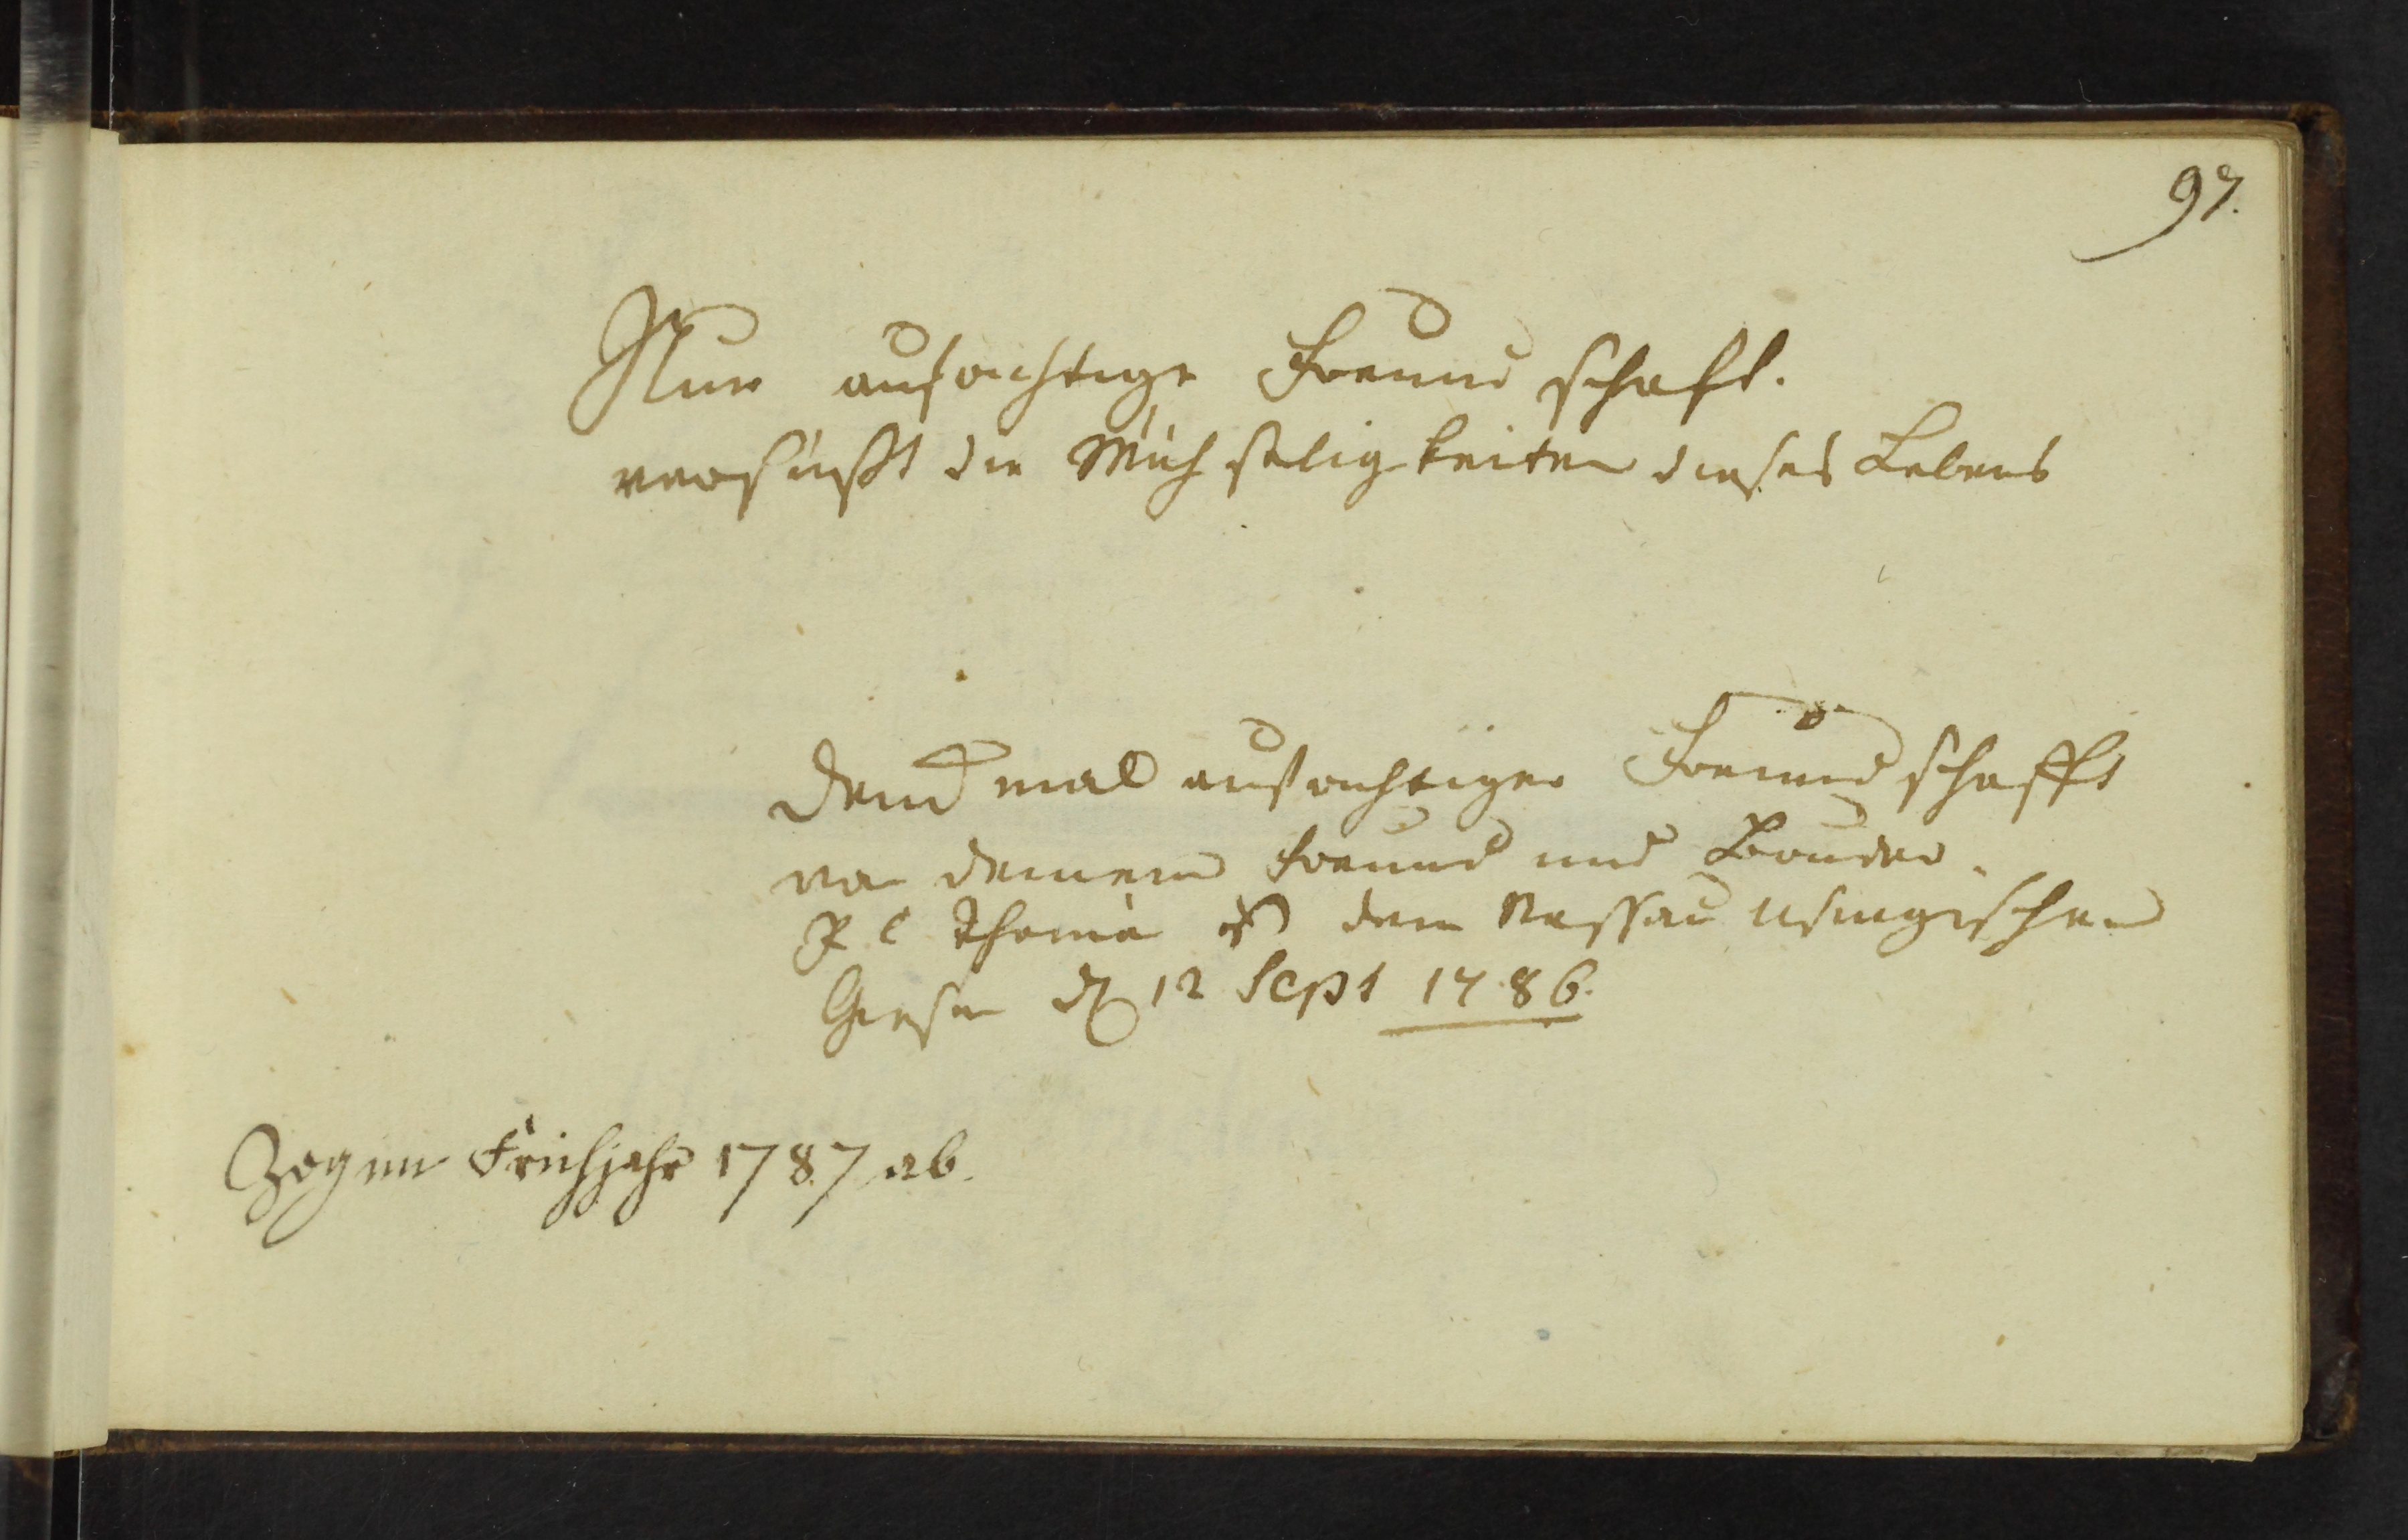 97.
Nur aufrichtige Freundschaft.
versüßt die Mühseligkeiten dieses Lebens
Denckmal aufrichtiger Freundschafft
von deinem Freund und Bruder.
Thomä aus dem Nassau Usingischen
Giesen d 12 Sept 1786.
Zog im Frühjahr 1787 ab.